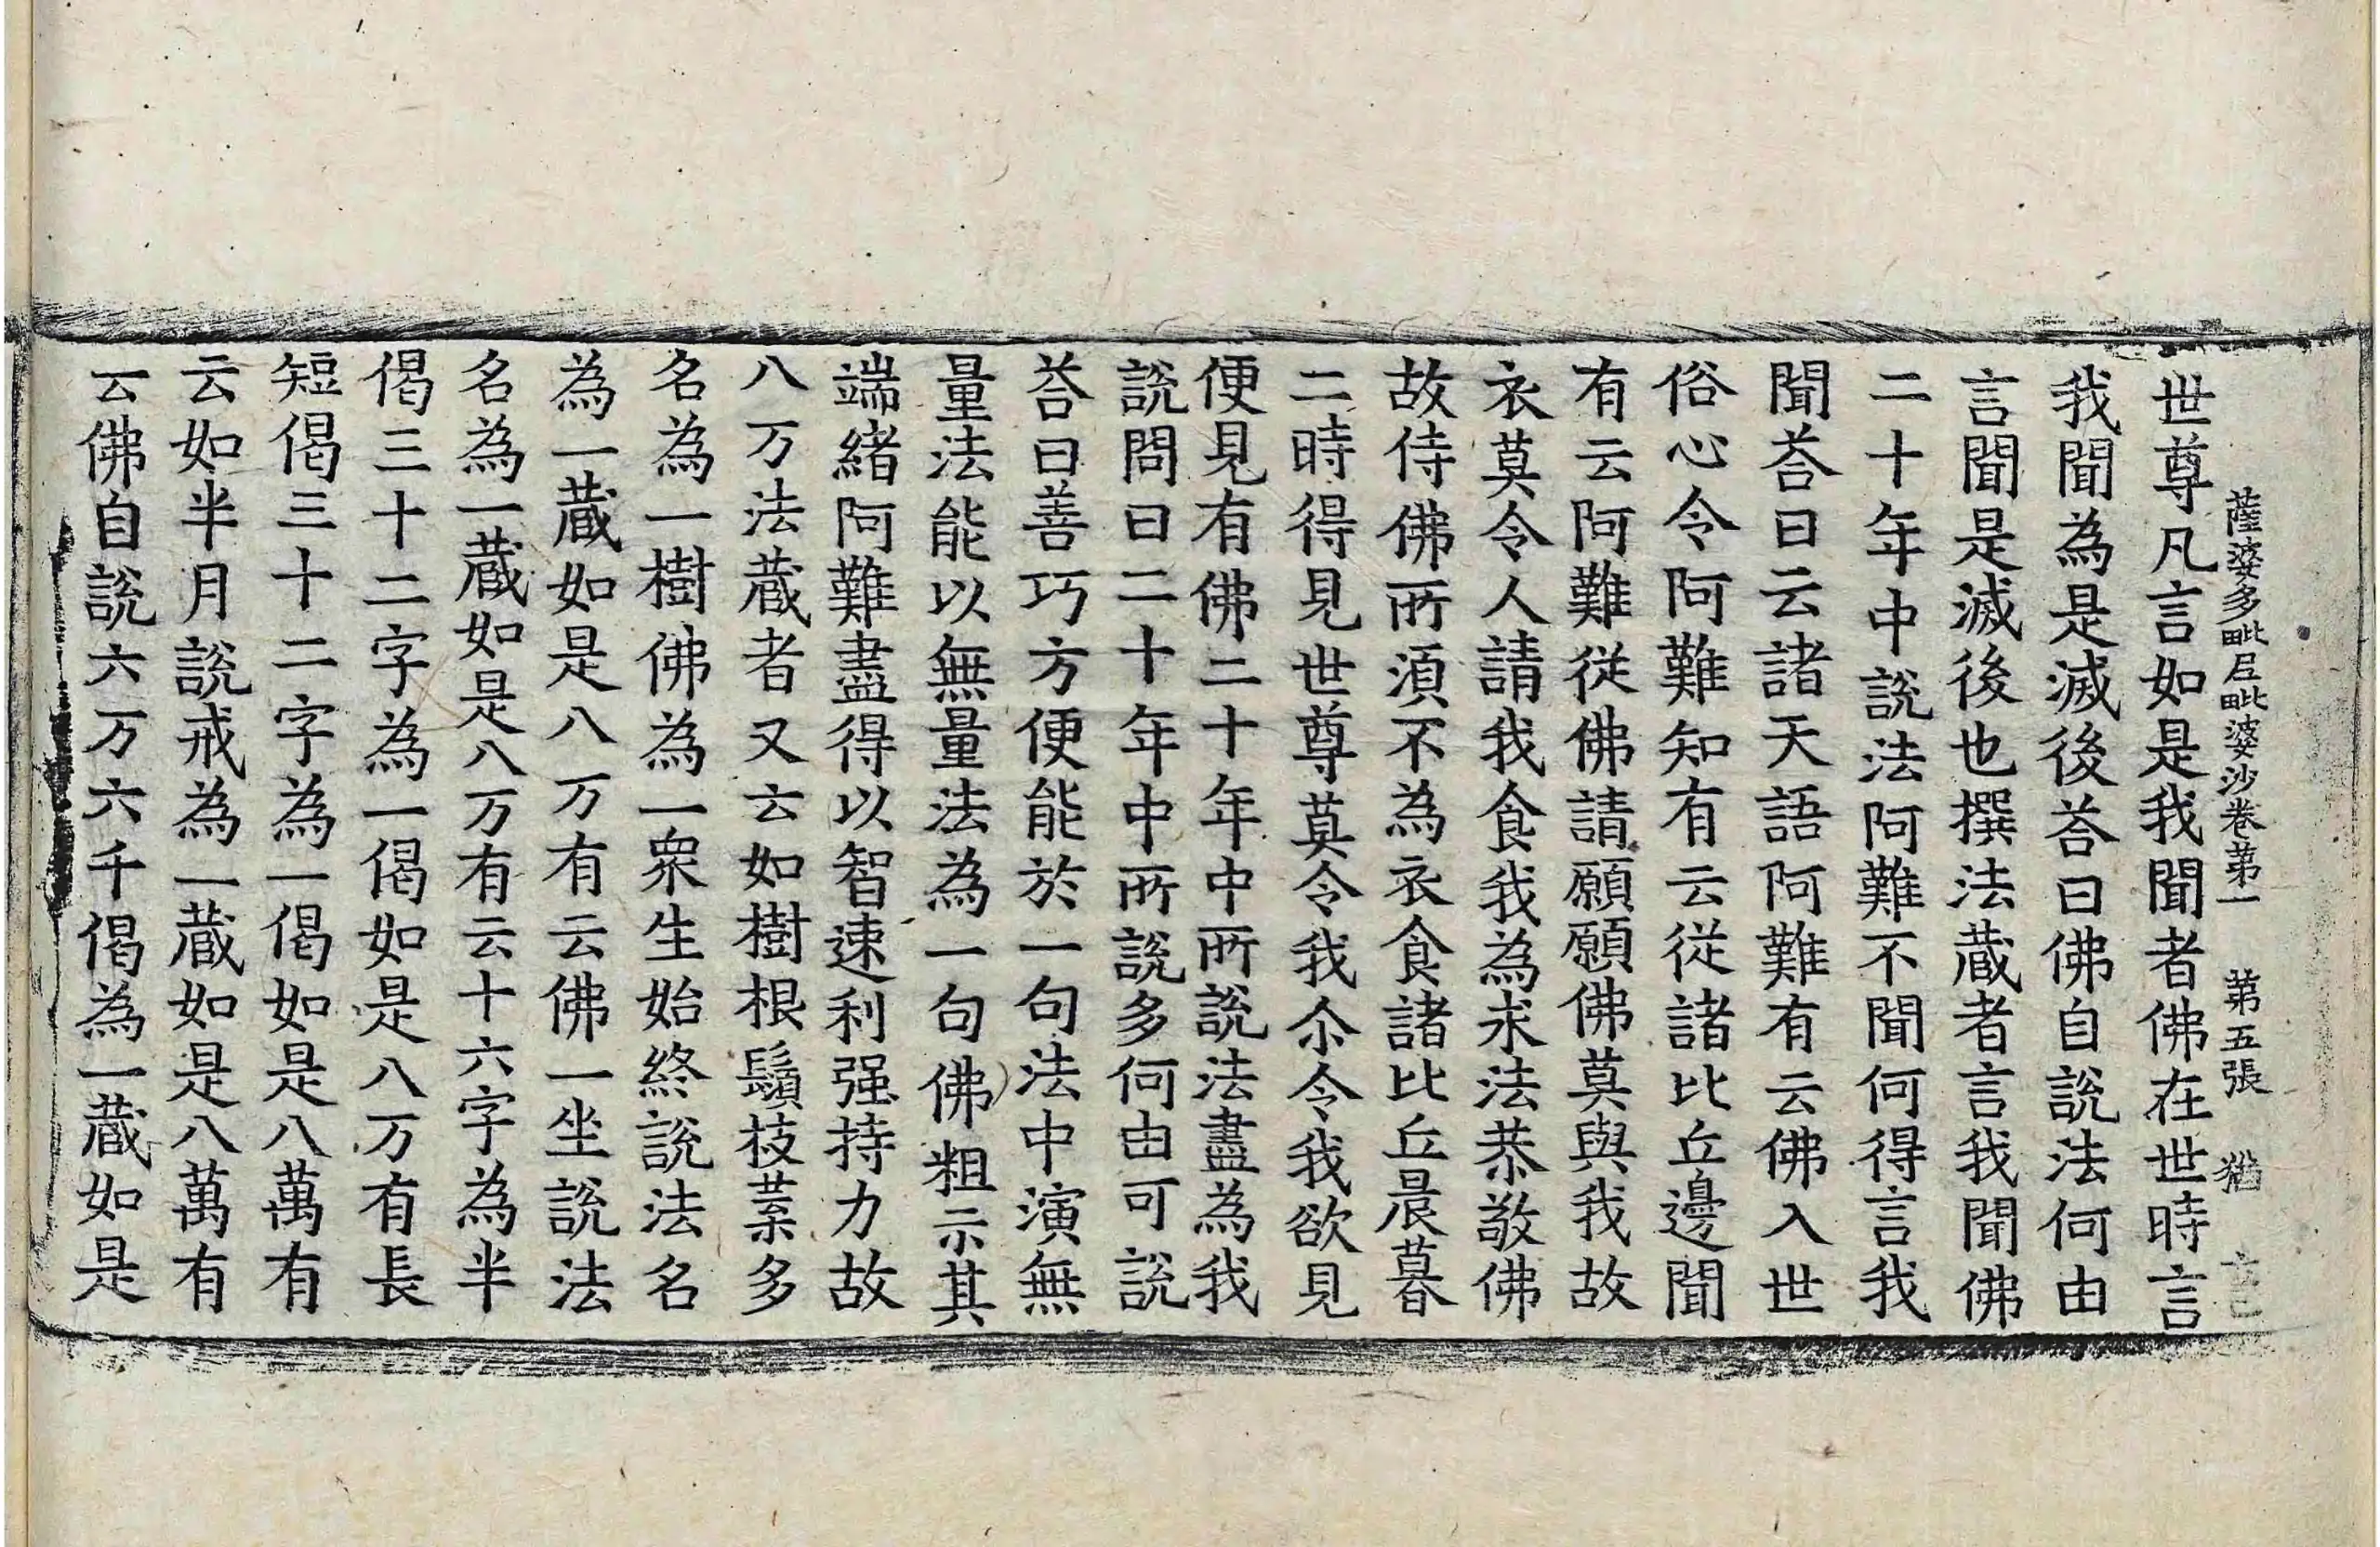 薩婆多毗尼毗婆沙卷第一 第五張 猶
世尊凡言如是我聞者佛在世時言
我聞為是滅後荅曰佛自說法何由
言聞是滅後也撰法蔵者言我聞佛
二十年中說法阿難不聞何得言我
聞荅曰云諸天語阿難有云佛入世
俗心令阿難知有云從諸比丘邊聞
有云阿難從佛請願願佛莫與我故
衣莫令人請我食我為求法恭敬佛
故侍佛所湏不為衣食諸比丘晨暮
二時得見世尊莫令我尒令我欲見
便見有佛二十年中所說法盡為我
說問曰二十年中所說多何由可說
荅曰善巧方便能於一句法中演無
量法能以無量法為一句佛粗示其
端緒阿難盡得以智速利强持力故
八万法蔵者又云如樹根鬚枝葉多
名為一樹佛為一衆生始終說法名
為一蔵如是八万有云佛一坐說法
名為一蔵如是八万有云十六字為半
偈三十二字為一偈如是八万有長
短偈三十二字為一偈如是八萬有
云如半月說戒為一蔵如是八萬有
云佛自說六万六千偈為一蔵如是